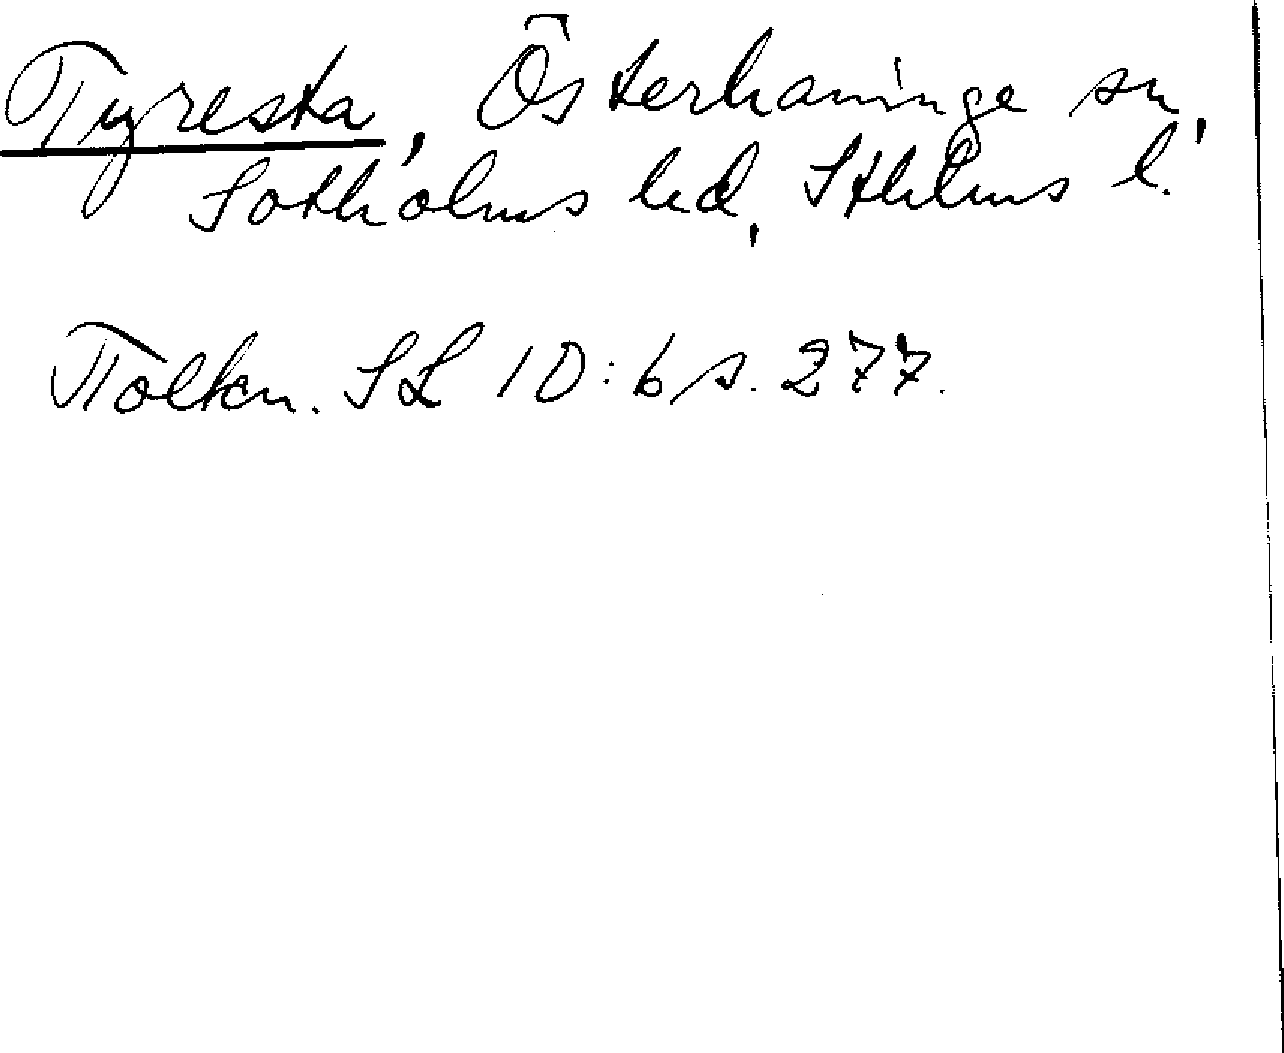 Tyresta, Österhaninge sn,
Sotholms hd, Sthlms l.
Tolkn. SL 10:6 s. 277.